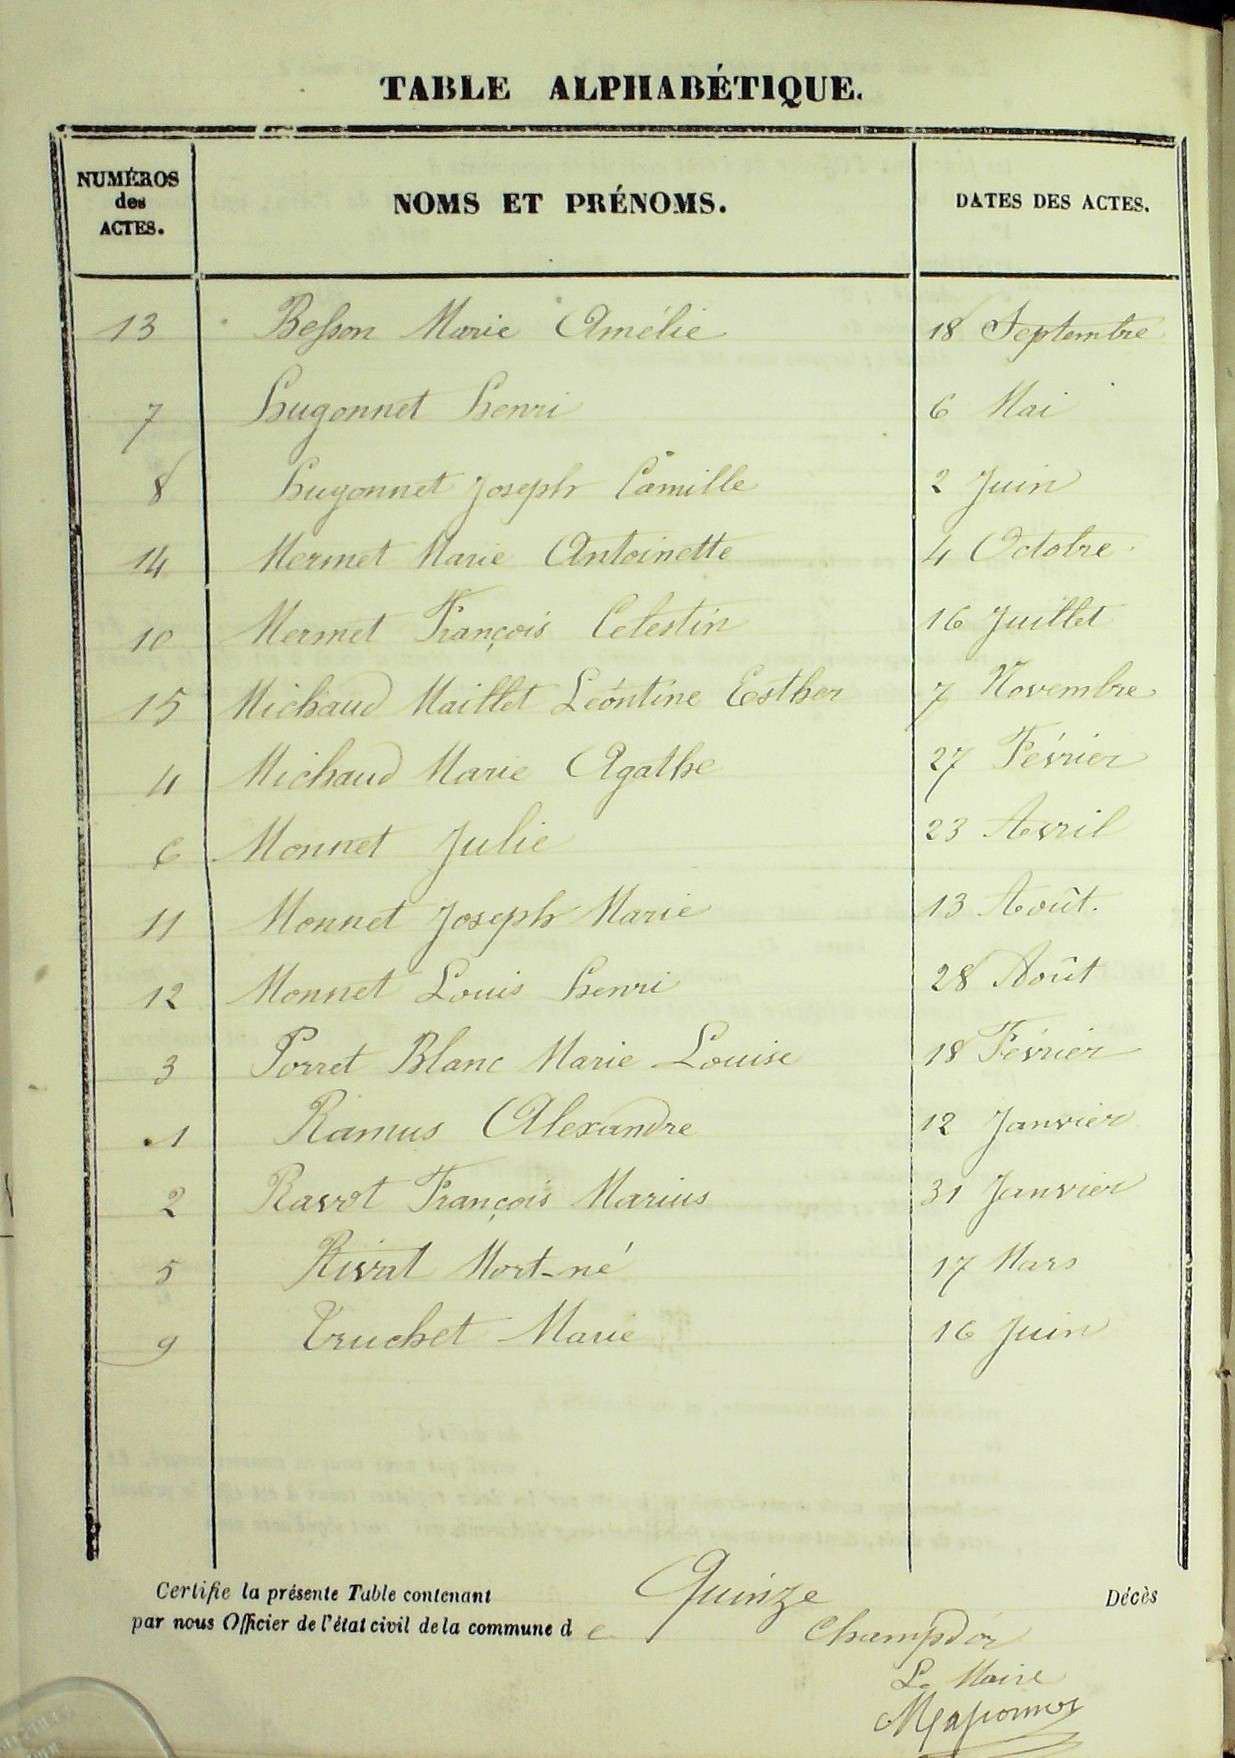 TABLE ALPHABÉTIQUE.
NUMÉROS des ACTES. NOMS ET PRÉNOMS. DATES DES ACTES.
13 Besson Marie Amélie 18 Septembre
7 Hugonnet Henri 6 Mai
8 Hugonnet Joseph Camille 2 Juin
14 Mermet Marie Antoinette 4 Octobre
10 Mermet François Celestin 16 Juillet
15 Michaud Maillet Léontine Esther 7 Novembre
4 Michaud Marie Agathe 27 Février
6 Monnet Julie 23 Avril
11 Monnet Joseph Marie 13 Août.
12 Monnet Louis Henri 28 Août
3 Porret Blanc Marie Louise 18 Février
1 Ramus Alexandre 12 Janvier
2 Ravot François Marius 31 Janvier
5 Rivat Mort-né 17 Mars
9 Truchet Marie 16 Juin
Certifie la présente Table contenant Quinze Décès
par nous Officier de l'état civil de la commune de Champdor
Le Maire